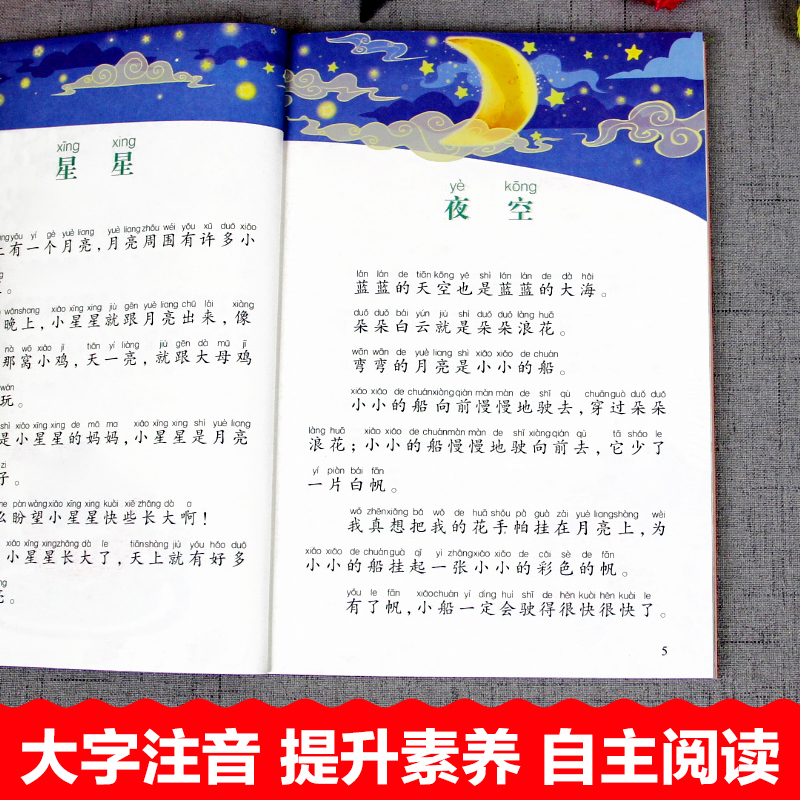 xīng xing
星 星
yǒu yí gè yuè liang yuè liang zhōu wéi yǒu xǔ duō xiǎo
上有一个月亮，月亮周围有许多小
。
wǎnshang xiǎo xīng xing jiù gēn yuè liang chū lái xiàng
晚上，小星星就跟月亮出来，像
nà wō xiǎo jī tiān yí liàng jiù gēn dà mǔ jī
那窝小鸡，天一亮，就跟大母鸡
wán
玩。
shì xiǎo xīng xing de mā ma xiǎo xīng xing shì yuè liang
是小星星的妈妈，小星星是月亮
zi
子。
me pàn wàng xiǎo xīng xing kuài xiē zhǎng dà a
么盼望小星星快些长大啊！
xiǎo xīng xing zhǎng dà le tiān shàng jiù yǒu hǎo duō
小星星长大了，天上就有好多
亮。
yè kōng
夜 空
lán lán de tiān kōng yě shì lán lán de dà hǎi
蓝蓝的天空也是蓝蓝的大海。
duǒ duǒ bái yún jiù shì duǒ duǒ làng huā
朵朵白云就是朵朵浪花。
wān wān de yuè liang shì xiǎo xiǎo de chuán
弯弯的月亮是小小的船。
xiǎo xiǎo de chuán xiàng qián màn màn de shǐ qù chuān guò duǒ duǒ
小小的船向前慢慢地驶去，穿过朵朵
làng huā xiǎo xiǎo de chuán màn màn de shǐ xiàng qián qù tā shǎo le
浪花；小小的船慢慢地驶向前去，它少了
yí piàn bái fān
一片白帆。
wǒ zhēn xiǎng bǎ wǒ de huā shǒu pà guà zài yuè liang shàng wèi
我真想把我的花手帕挂在月亮上，为
xiǎo xiǎo de chuán guà qǐ yì zhāng xiǎo xiǎo de cǎi sè de fān
小小的船挂起一张小小的彩色的帆。
yǒu le fān xiǎo chuán yí dìng huì shǐ de hěn kuài hěn kuài le
有了帆，小船一定会驶得很快很快了。
5
大字注音 提升素养 自主阅读